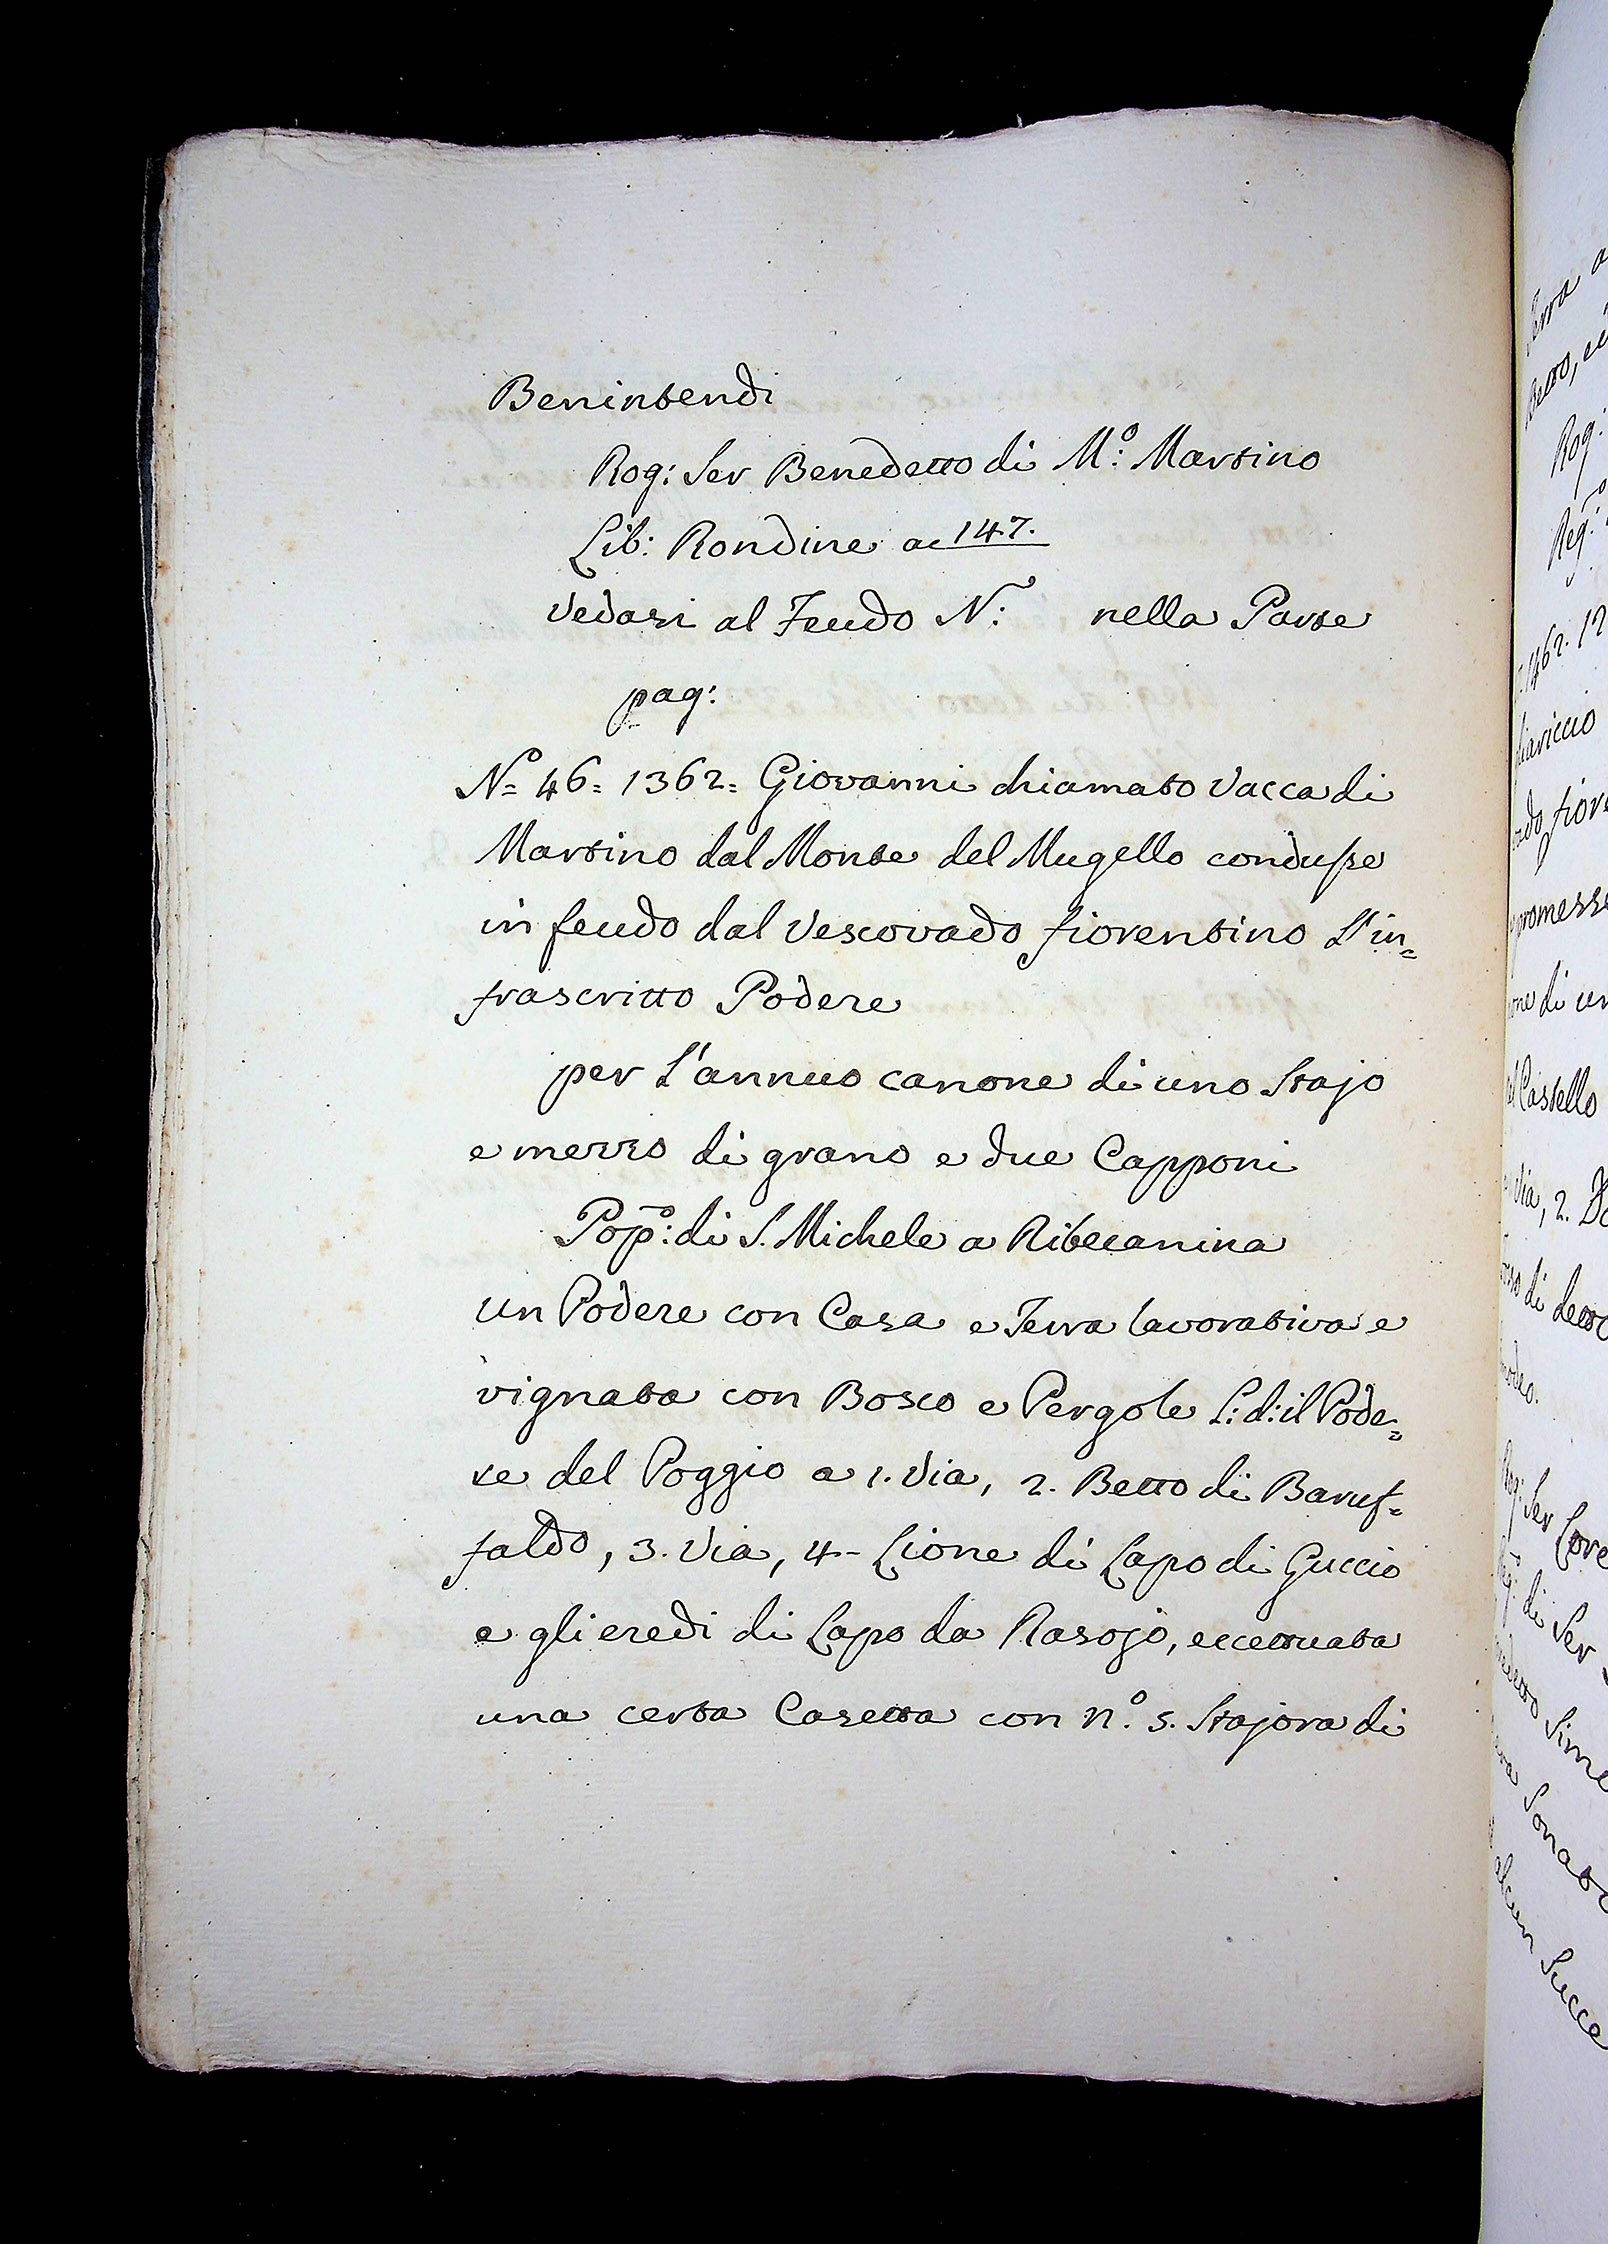 Benintendi
Rog: Ser Benedetto di M.º Martino
Lib: Rondine ac 147.
Vedasi al Feudo N: nella Parte
pag:
Nº 46= 1362= Giovanni chiamato Vacca di
Martino dal Monte del Mugello condusse
in feudo dal Vescovado fiorentino L'in=
frascritto Podere
per L'annuo canone di uno Stajo
e mezzo di grano e due Capponi
Popº: di S. Michele a Ribecanina
un Podere con Casa e Terra lavorativa e
vignata con Bosco e Pergole L: d: il Pode=
re del Poggio a 1. Via, 2. Betto di Baruf=
faldo, 3. Via, 4- Lione di Lapo di Guccio
e gli eredi di Lapo da Rasojo, eccettuata
una certa Casetta con n.º 5. Stajora di
Terra
Rog:
Reg:
1462. 12
promesse
di un
Castello
Via, 2.
di detto
Rog: Ser
di Ser
alcun Succe